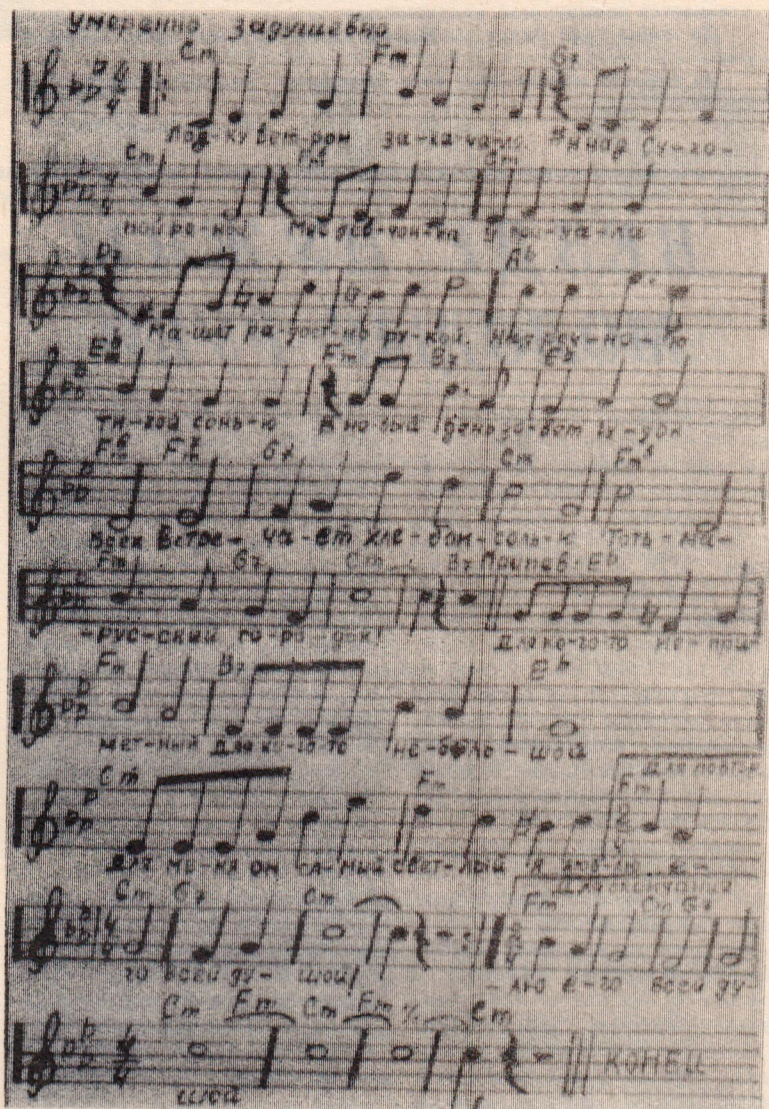 умеренно задушевно
Cm Fm G7
Лод-ку вет-ром за-ка-ча-ло. над Су-хо-
Cm Fm6 Cm
ной ре-кой Мне дев-чон-ка у при-ча-ла
D7 Ab
Ма-шет ра-дост-но ру-кой. Над
Eb Fm B7 Eb
ти-хой И но-вый день зо-вет гу-док
Fm6 G7 Cm Fm6
Всех встре-ча-ет хле-бом-соль-ю Тоть-ма-
Fm G7 Cm B7 Припев. Eb
-рус-ский го-ро-док! Для ко-го-то не-при-
Fm B7 Eb
мет-ный Для ко-го-то не-боль-шой
Для
Cm Fm Fm
Для ме-ня он са-мый свет-лый Я люб-лю е-
Для окончания
Cm G7 Cm Fm Cm G7
го всей ду-шой! -лю е-го всей ду
Cm Fm Cm Fm % Cm
шой КОНЕЦ